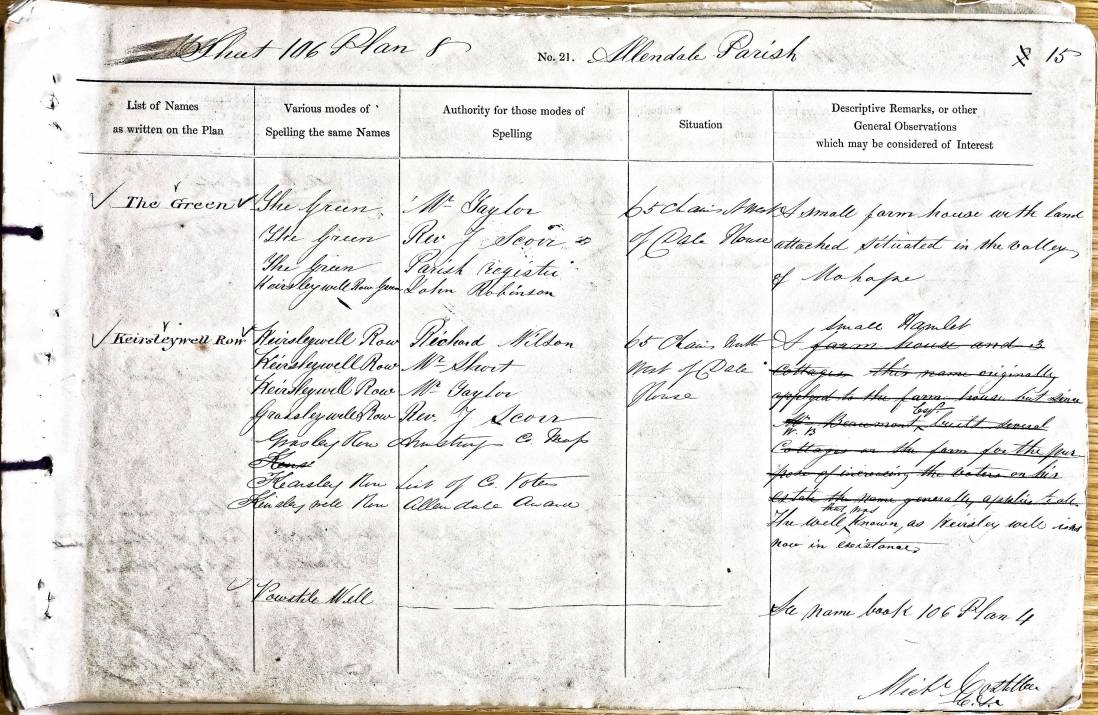 Sheet 106 Plan 8 No. 21. Allendale Parish 15
List of Names
as written on the Plan
Various modes of
Spelling the same Names
Authority for those modes of
Spelling
Situation
Descriptive Remarks, or other
General Observations
which may be considered of Interest
The Green The Green Mr Taylor 65 Chains N West A small farm house with land
The Green Rev J Scorr of Dale House attached situated in the valley
The Green Parish register of Mohope
Keirsleywell Row Green John Robinson
small Hamlet
Keirsleywell Row Keirsleywell Row Richard Wilson 65 Chains North A farm house and 13
Keirsleywell Row Mr Short West of Dale Cottages this name originally
Keirsleywell Row Mr Taylor House applied to the farm house but since
Grassleywell Row Rev. J Scorr Mr Beaumont Esqr. built several
W. B
Grasley Row Armstrong Co. Map Cottages on the farm for the pur-
Kens
pose of increasing the voters on his
Kearsley Row List of Co. Voters estate the name generally applies to all.
Keirsley well Row Allendale Award The well that was known as Keirsley well is not
now in existance
Powstile Well See name book 106 Plan 4
Michl